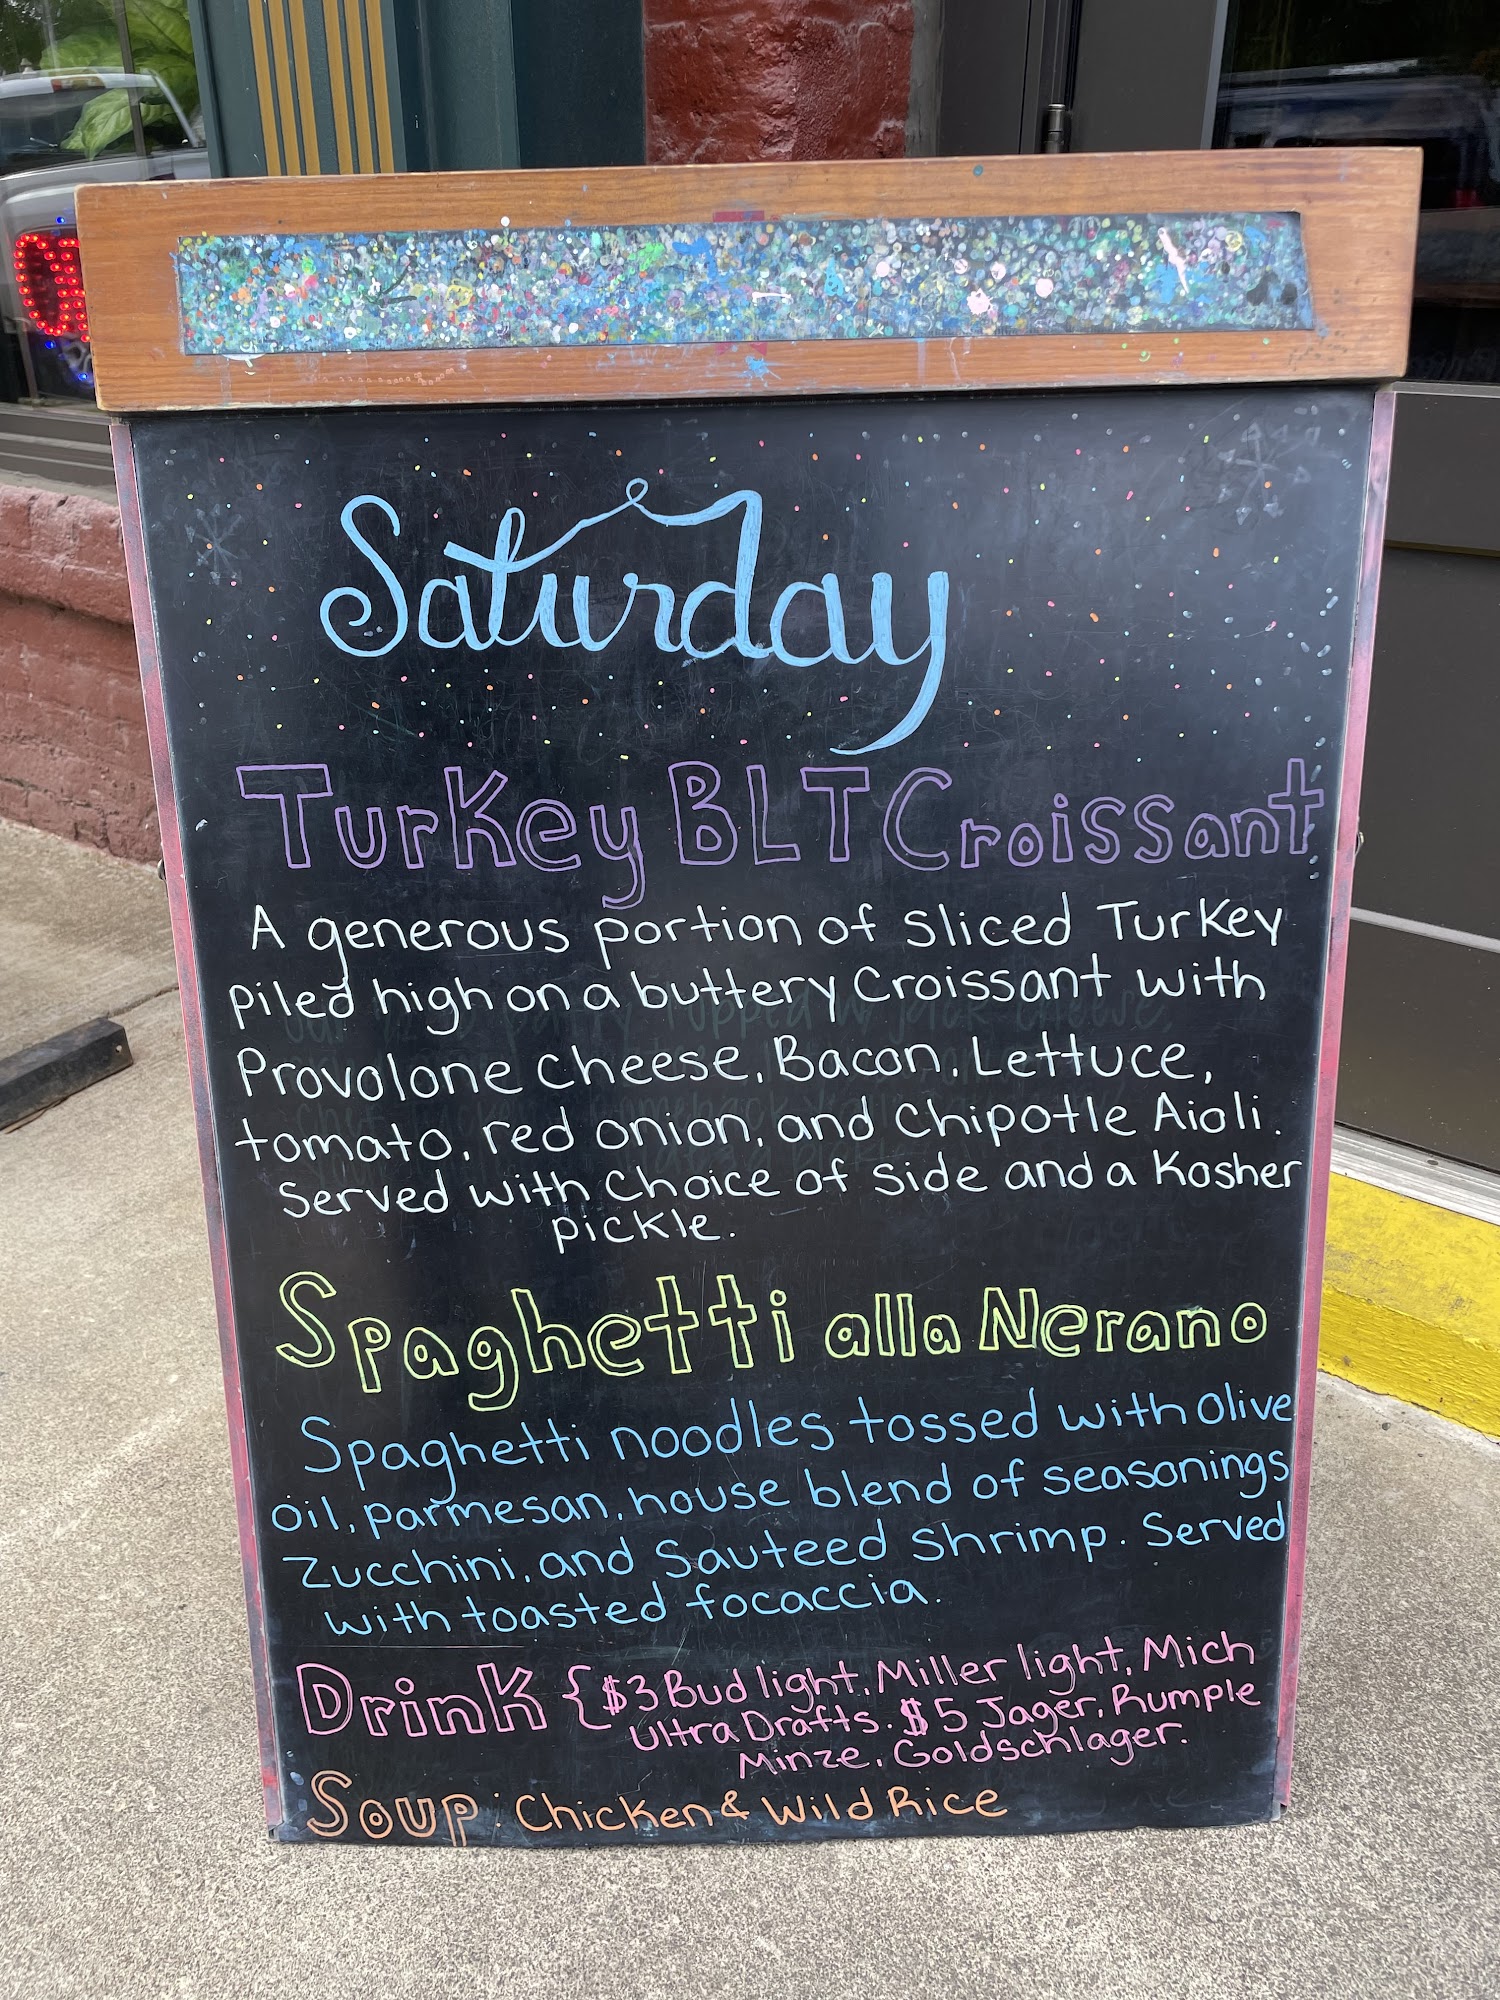 Saturday
Turkey BLT Croissant
A generous portion of sliced Turkey
piled high on a buttery Croissant with
Provolone cheese, Bacon, Lettuce,
tomato, red onion, and Chipotle Aioli.
Served with Choice of side and a Kosher
pickle.
Spaghetti alla Nerano
Spaghetti noodles tossed with olive
oil, parmesan, house blend of seasonings
zucchini, and Sauteed Shrimp. Served
with toasted focaccia.
Drink { $3 Bud light, Miller light, Mich
Ultra Drafts. $5 Jager, Rumple
Minze, Goldschlager.
Soup: Chicken & Wild Rice